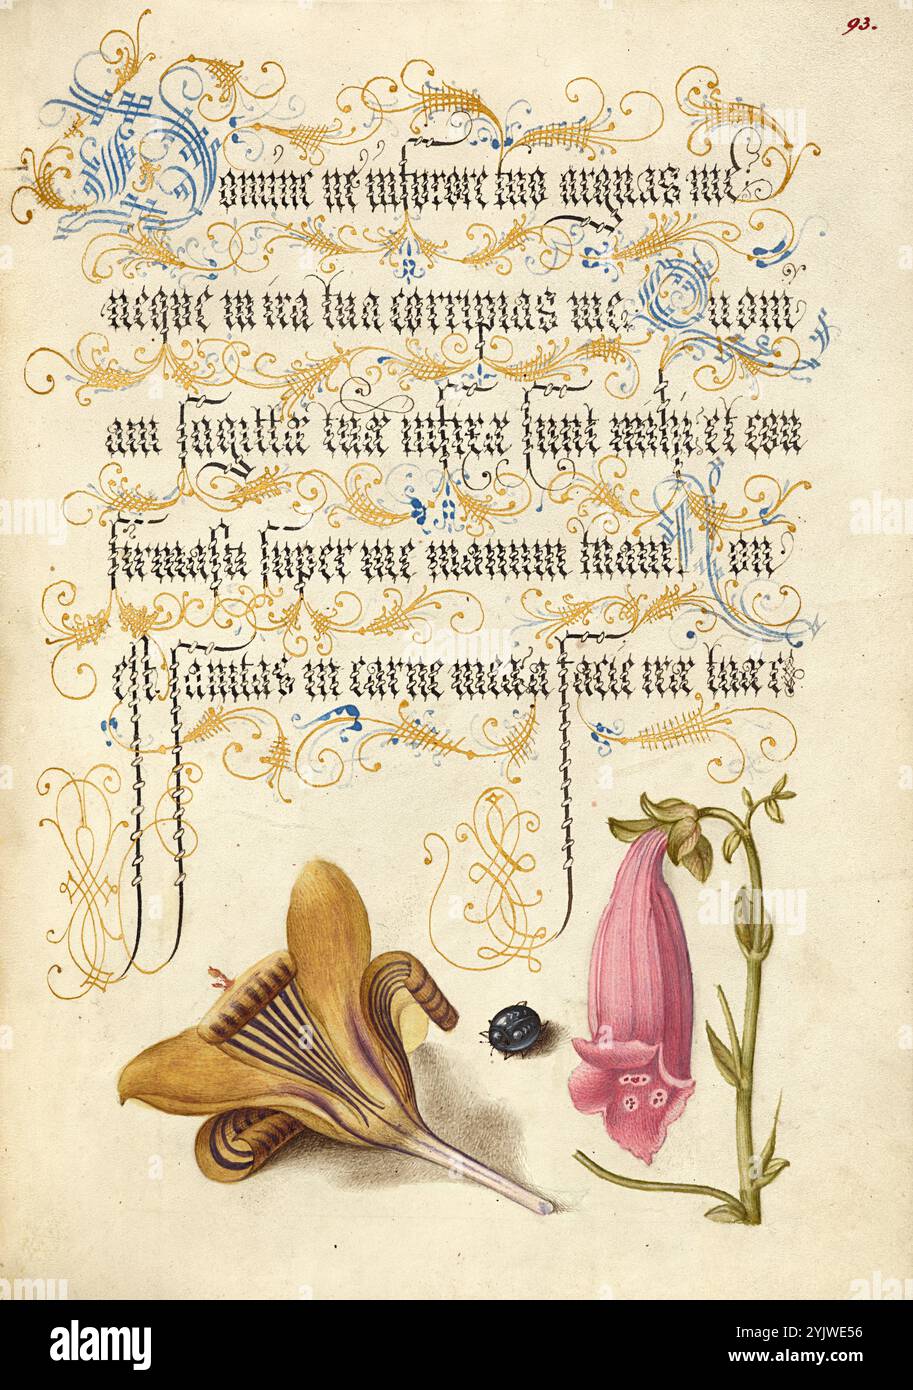 93.
Domine ne in furore tuo arguas me
neque in ira tua corripias me Quoni
am sagittæ tuæ infixæ sunt mihi, et con
firmasti super me manum tuam Non
est sanitas in carne mea a facie iræ tuæ
alamy
Image ID: 2YJWE56
www.alamy.com